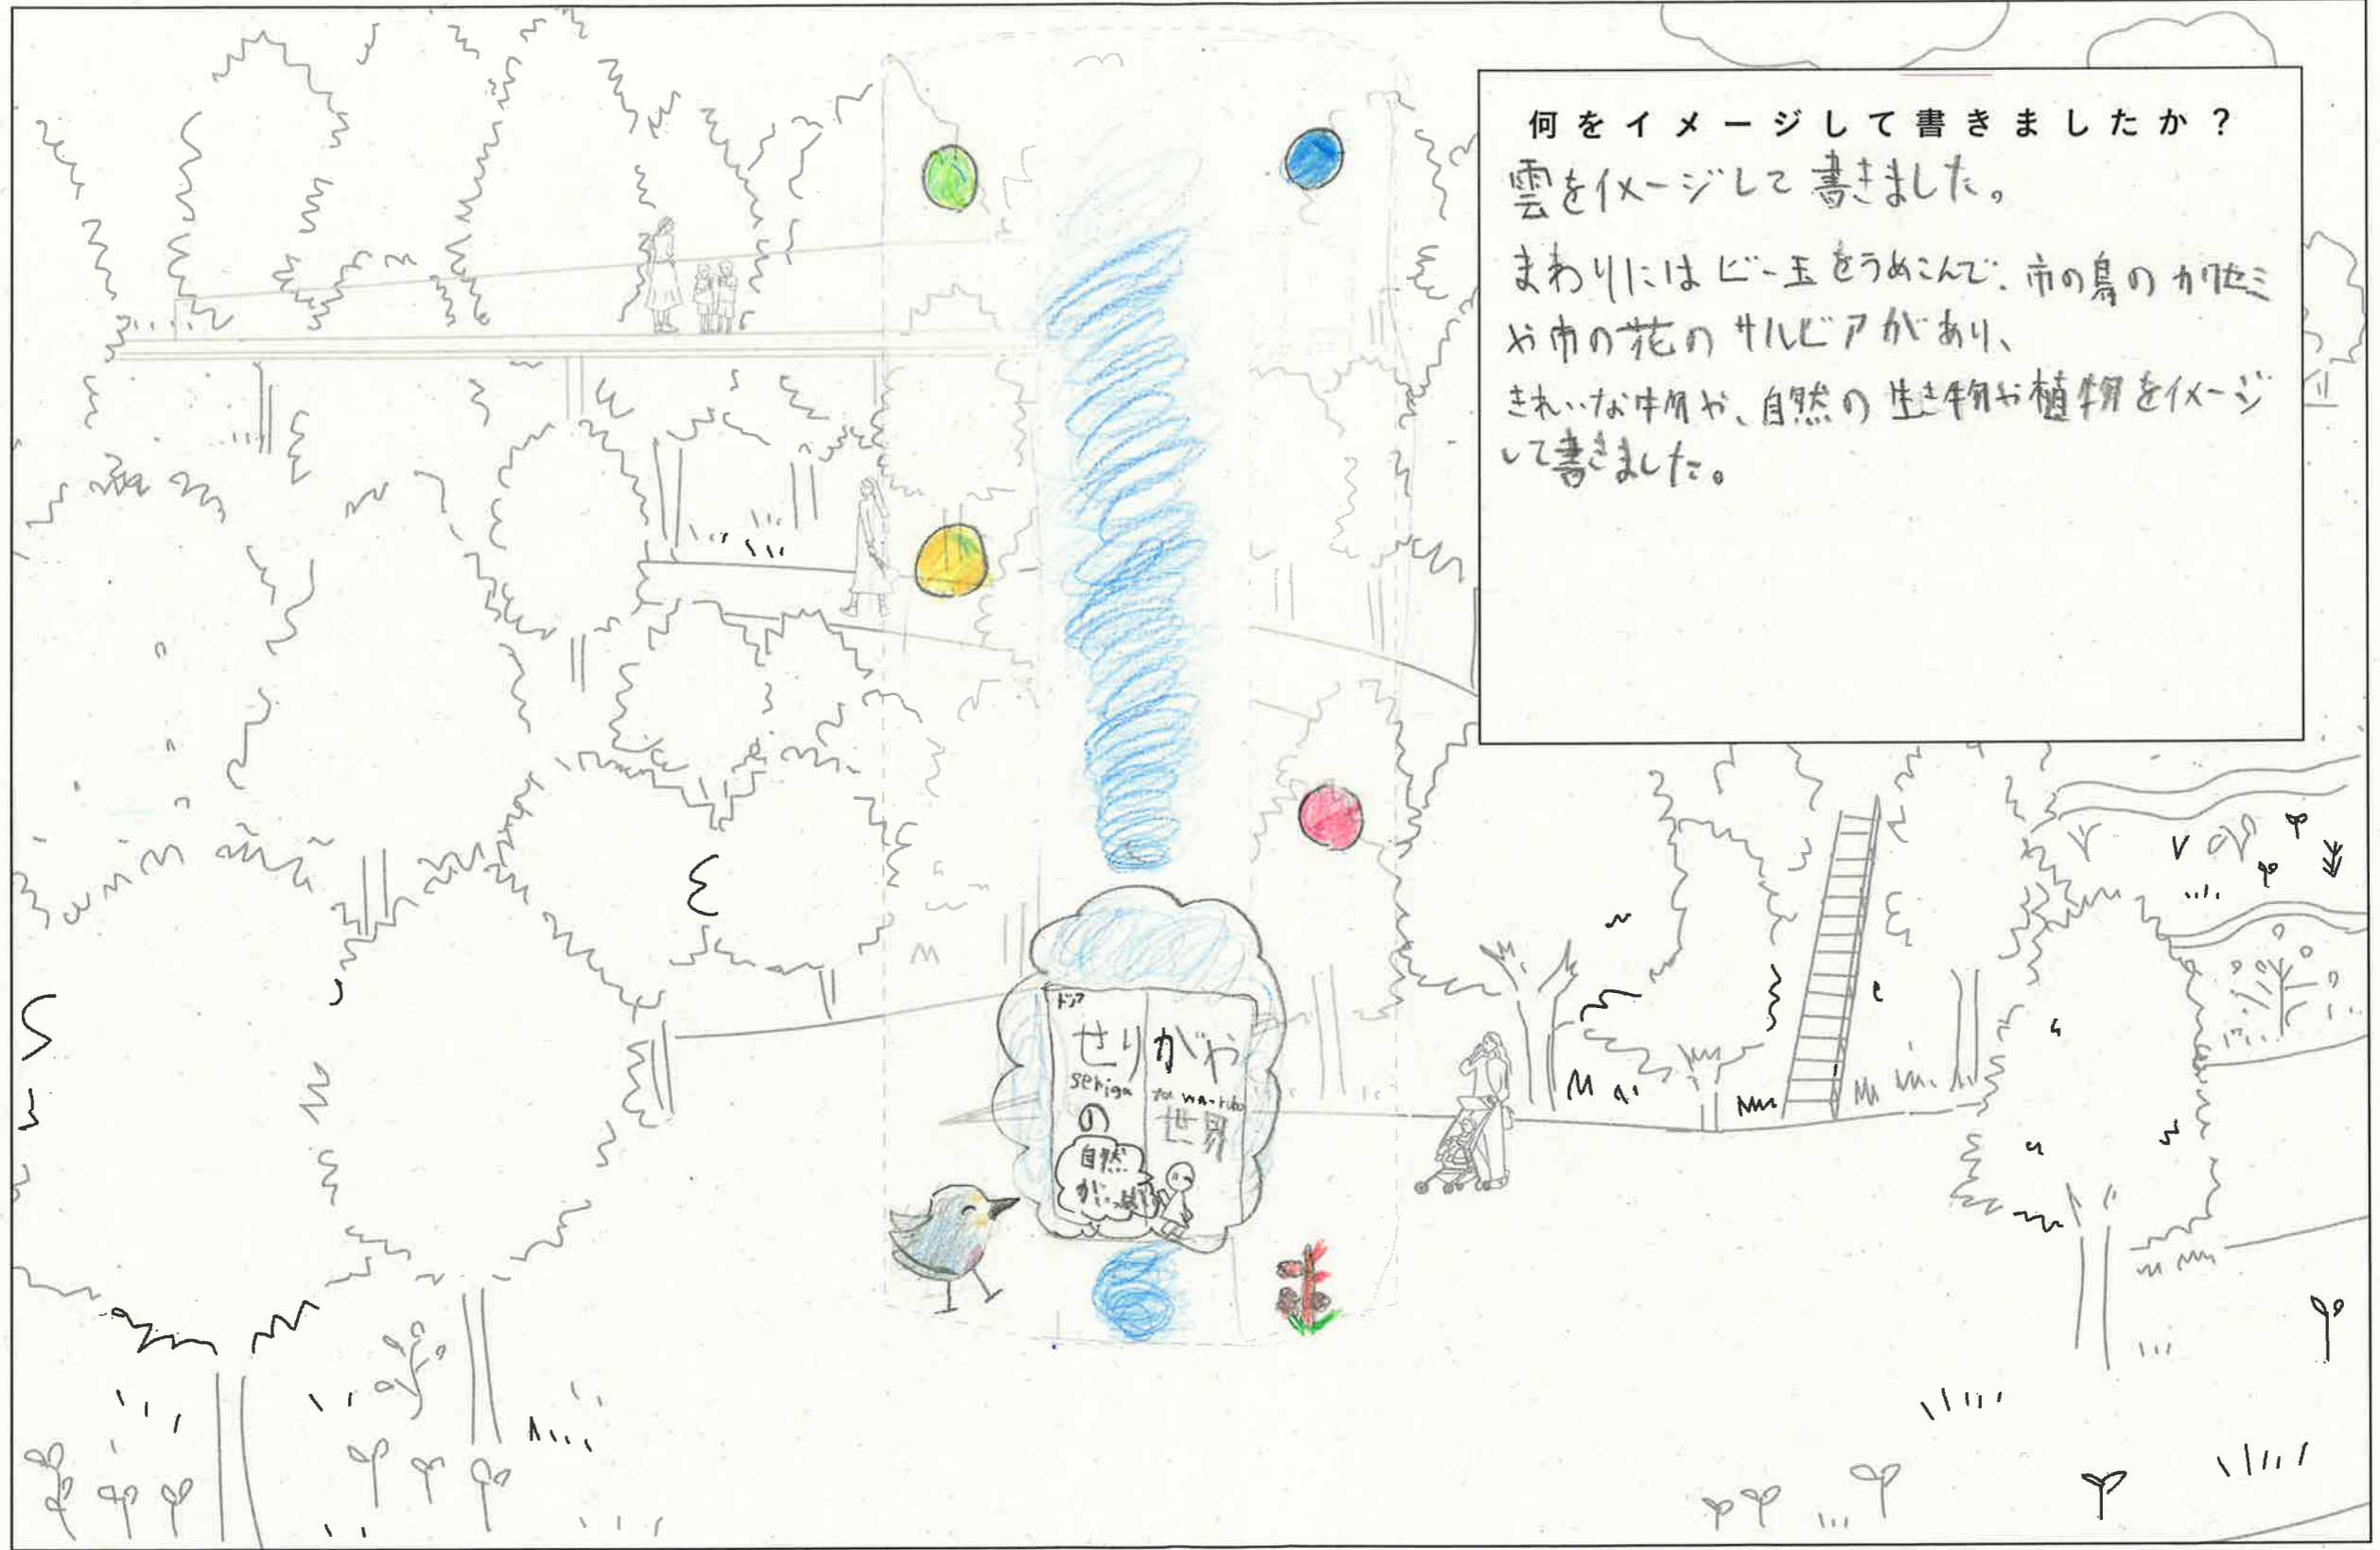 何をイメージして書きましたか?
雲をイメージして書きました。
まわりにはビー玉をうめこんで、市の鳥のカワセミ
や市の花のサルビアがあり、
きれいな物や、自然の生き物や植物をイメージ
して書きました。
ドア
せりがや
seriga
の世界
自然